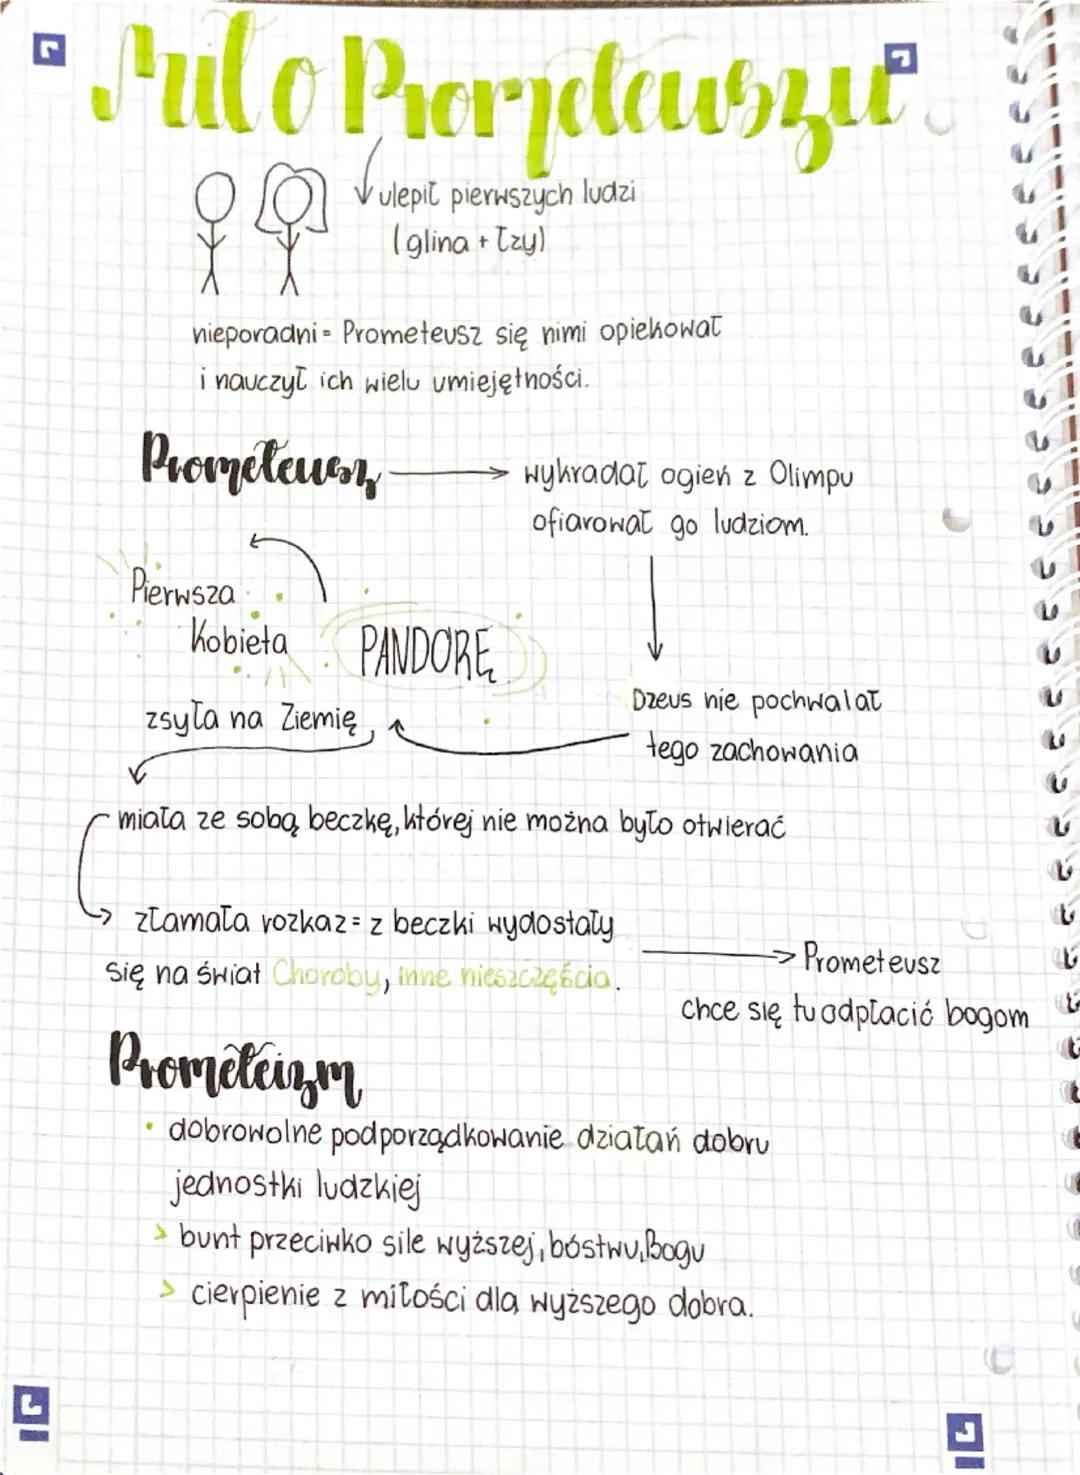 Mit o Prometeuszu
ulepił pierwszych ludzi
(glina + łzy)
nieporadni = Prometeusz się nimi opiekował
i nauczył ich wielu umiejętności.
Prometeusz
wykradał ogień z Olimpu
ofiarował go ludziom.
Pierwsza
Kobieta
PANDORĘ
zsyła na Ziemię
Dzeus nie pochwalał
tego zachowania
miała ze sobą beczkę, której nie można było otwierać
złamała rozkaz = z beczki wydostały
się na świat Choroby, inne nieszczęścia.
Prometeusz
chce się tu odpłacić bogom
Prometeizm
• dobrowolne podporządkowanie działań dobru
jednostki ludzkiej
> bunt przeciwko sile wyższej, bóstwu, Bogu
> cierpienie z miłości dla wyższego dobra.